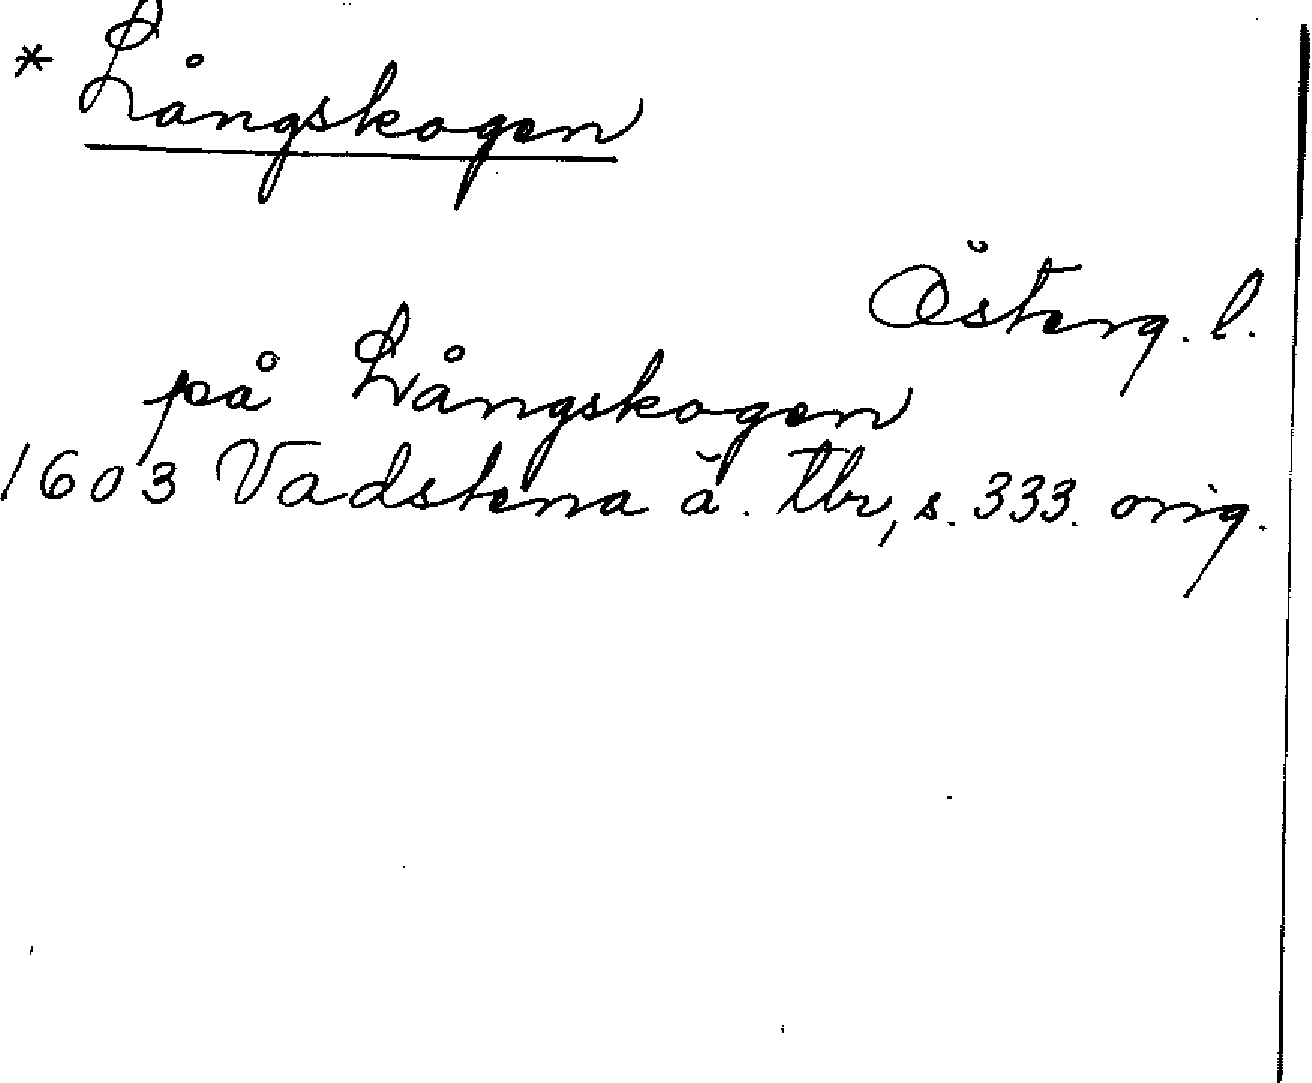 * Långskogen
Österg. l.
på Långskogen
1603 Vadstena ä. tbr, s. 333. orig.